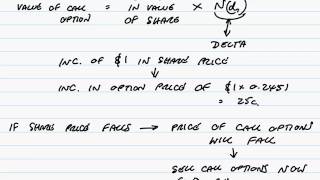 VALUE OF CALL OPTION = IN VALUE OF SHARE × N(d₁)
DELTA
INC. OF $1 IN SHARE PRICE
INC. IN OPTION PRICE OF $1 × 0.2451
= 25c
IF SHARE PRICE FALLS → PRICE OF CALL OPTIONS
WILL FALL
SELL CALL OPTIONS NOW